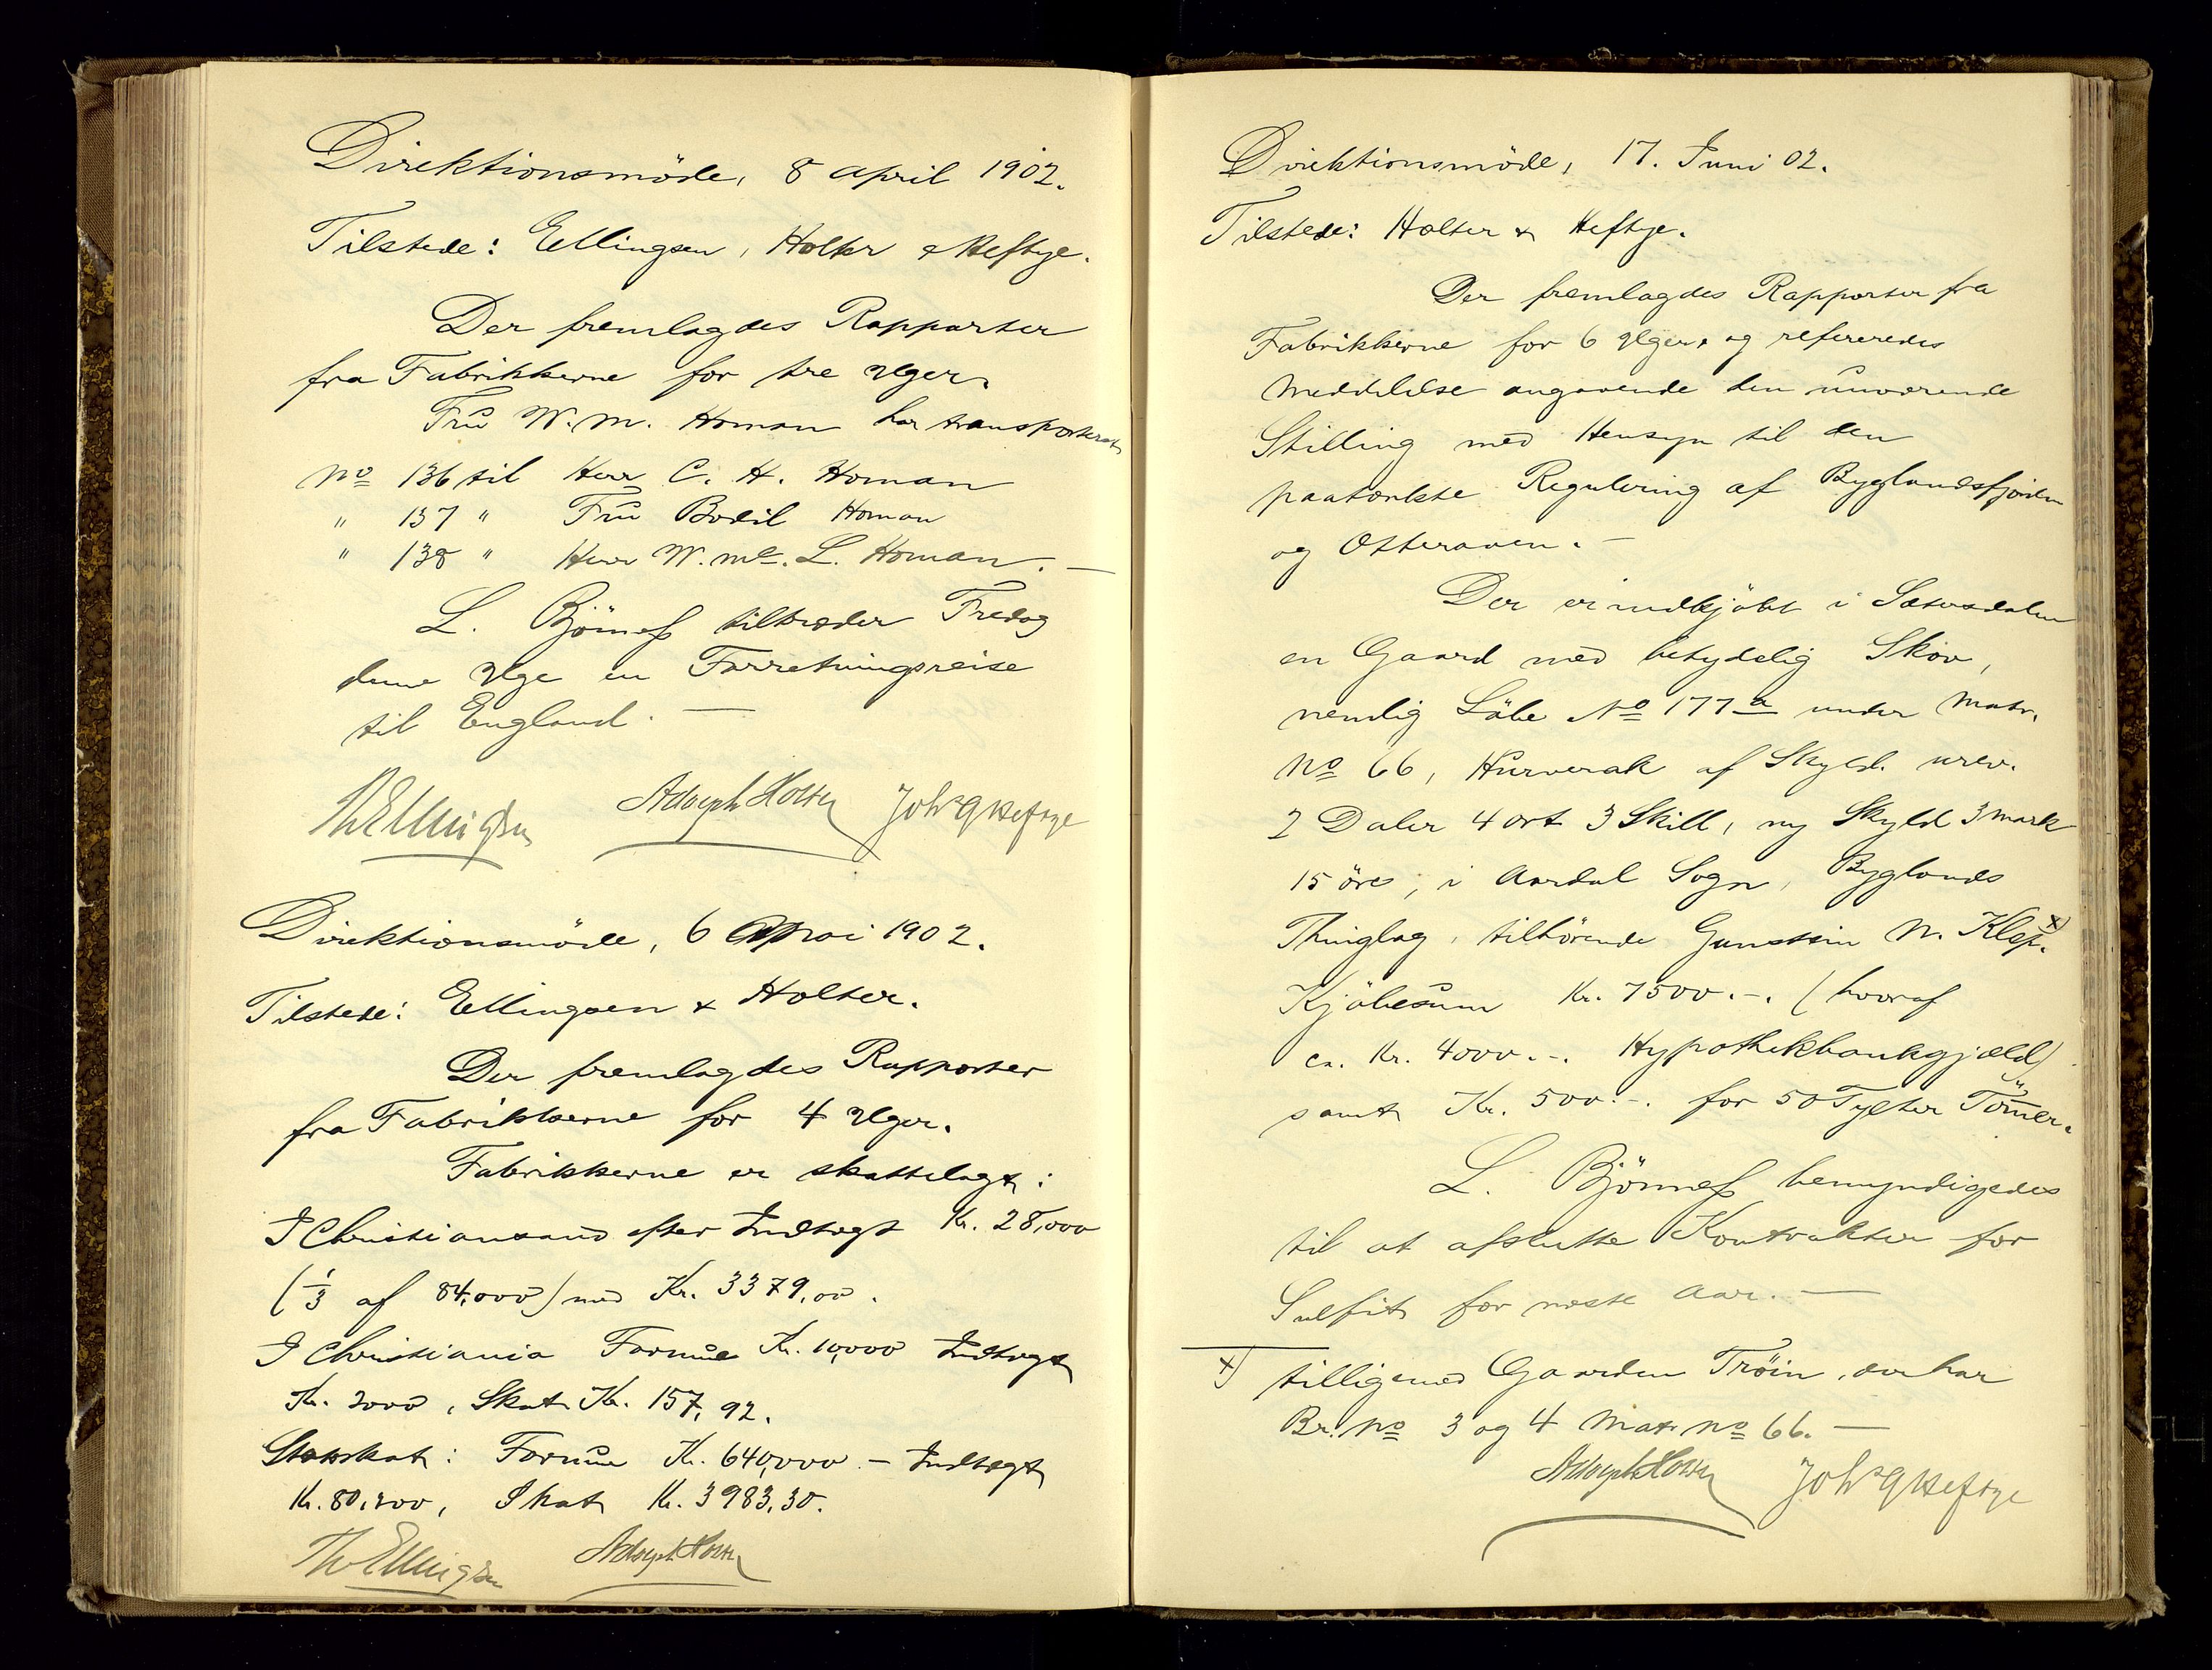 Direktionsmöde, 8 April 1902.
Tilstede: Ellingsen, Holter & Heftye.
Der fremlagdes Rapporter
fra Fabrikkerne for tre Uger.
Frŭ W. M. Homan har transporteret
No 136 til Herr C. H. Homan
" 137 " Frŭ Bodil Homan
" 138 " Herr W. Mc. L. Homan. —
L. Bjönness tiltræder Fredag
denne Uge en Forretningsreise
til England. —
Th Ellingsen Adolph Holter Joh s G Heftye
Direktionsmöde, 6 Mai 1902.
Tilstede: Ellingsen & Holter.
Der fremlagdes Rapporter
fra Fabrikkerne for 4 Uger.
Fabrikkerne er skattelagt:
I Christiansand efter Indtægt Kr. 28,000
(1/3 af 84,000) med Kr. 3379,00.
I Christiania Formŭe Kr. 10,000 Indtægt
Kr. 2000, Skat Kr. 157,92.
Statsskat: Formŭe Kr. 640,000 – Indtægt
Kr. 80,200, Skat Kr. 3983,30.
Th Ellingsen Adolph Holter
Direktionsmöde, 17. Juni 02.
Tilstede: Holter & Heftye.
Der fremlagdes Rapporter fra
Fabrikkerne for 6 Uger, og refereredes
Meddelelse angaaende den nŭværende
Stilling med Hensyn til den
paatænkte Regulering af Byglandsfjorden
og Otteraaen. —
Der er indkjöbt i Sætersdalen
en Gaard med betydelig Skov,
nemlig Löbe No 177 a under Matr.
No 66, Hŭrverak af Skyld. urev.
2 Daler 4 ort 3 Skill, ny Skyld 3 mark
15 öre, i Aardal Sogn, Byglands
Thinglag, tilhörende Gunstein N. Klep. x)
Kjöbesŭm Kr. 7500.-. (hvoraf
ca. Kr. 4000.-. Hypothekbankgjæld)
samt Kr. 500.-. for 50 Tylter Tömmer.
L. Bjönness bemyndigedes
til at afslutte Kontrakter for
Sulfit for næste Aar. —
x) tilligemed Gaarden Tröin, der har
Br. No 3 og 4 Matr. No 66. —
Adolph Holter Joh s G Heftye